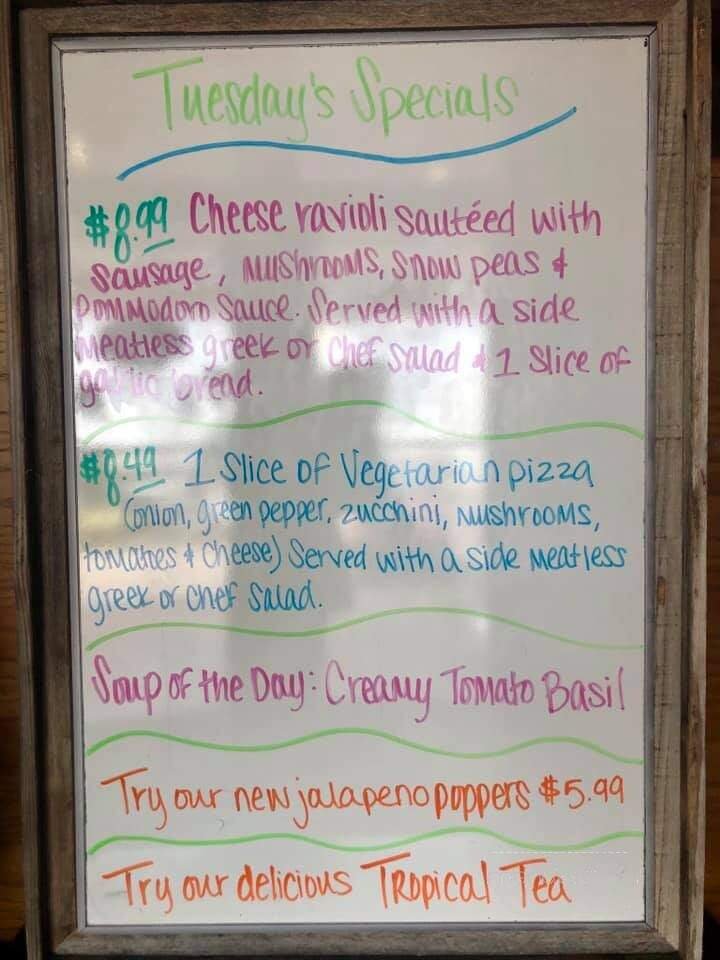 Tuesday's Specials
$8.99 Cheese ravioli sautéed with
sausage, mushrooms, snow peas &
pommodoro sauce. Served with a side
meatless greek or chef salad & 1 slice of
garlic bread.
$8.49 1 slice of Vegetarian pizza
(onion, green pepper, zucchini, mushrooms,
tomatoes & cheese) Served with a side meatless
greek or chef salad.
Soup of the Day: Creamy Tomato Basil
Try our new jalapeno poppers $5.99
Try our delicious Tropical Tea